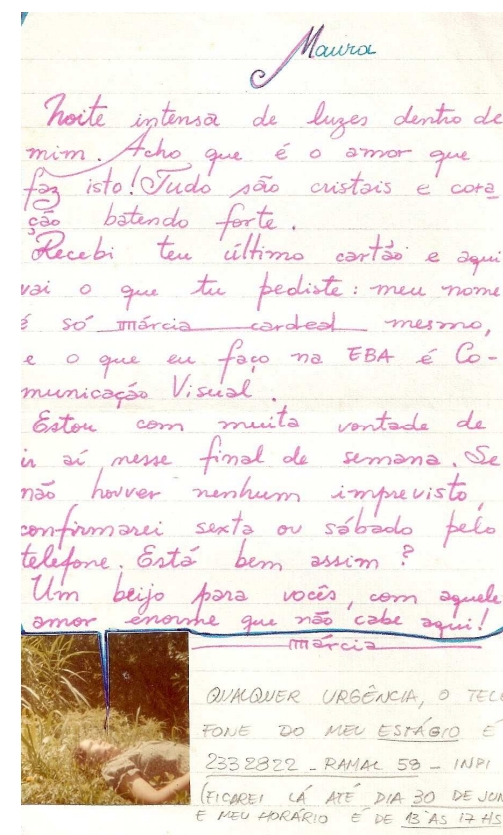 Maura
Noite intensa de luzes dentro de
mim. Acho que é o amor que
faz isto! Tudo são cristais e cora
ção batendo forte.
Recebi teu último cartão e aqui
vai o que tu pediste: meu nome
é só márcia cardeal mesmo,
e o que eu faço na EBA é Co-
municação Visual.
Estou com muita vontade de
ir aí nesse final de semana. Se
não houver nenhum imprevisto,
confirmarei sexta ou sábado pelo
telefone. Está bem assim?
Um beijo para vocês, com aquele
amor enorme que não cabe aqui!
márcia
QUALQUER URGÊNCIA, O TELE
FONE DO MEU ESTÁGIO É
2332822 - RAMAL 59 - INPI
(FICAREI LÁ ATÉ DIA 30 DE JUN
E MEU HORÁRIO É DE 13 ÀS 17 HS